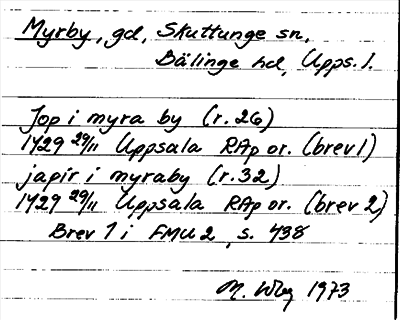 Myrby, gd, Skuttunge sn,
Bälinge hd, Upps. l.
Jop i myra by (r. 26)
1429 29/11 Uppsala RAp or. (brev 1)
japir i myraby (r. 32)
1429 29/11 Uppsala RAp or. (brev 2)
Brev 1 i FMU 2, s. 438
M. 1973